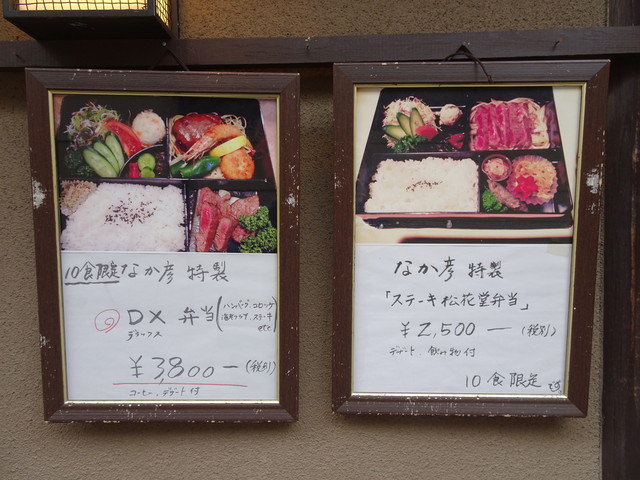 10食限定 なか彦 特製
DX 弁当 (ハンバーグ、コロッケ
デラックス
海老フライ、ステーキ
etc)
¥3,800ー (税別)
コーヒー、デザート付
なか彦 特製
「ステーキ松花堂弁当」
¥2,500ー (税別)
デザート 飲み物付
10食限定